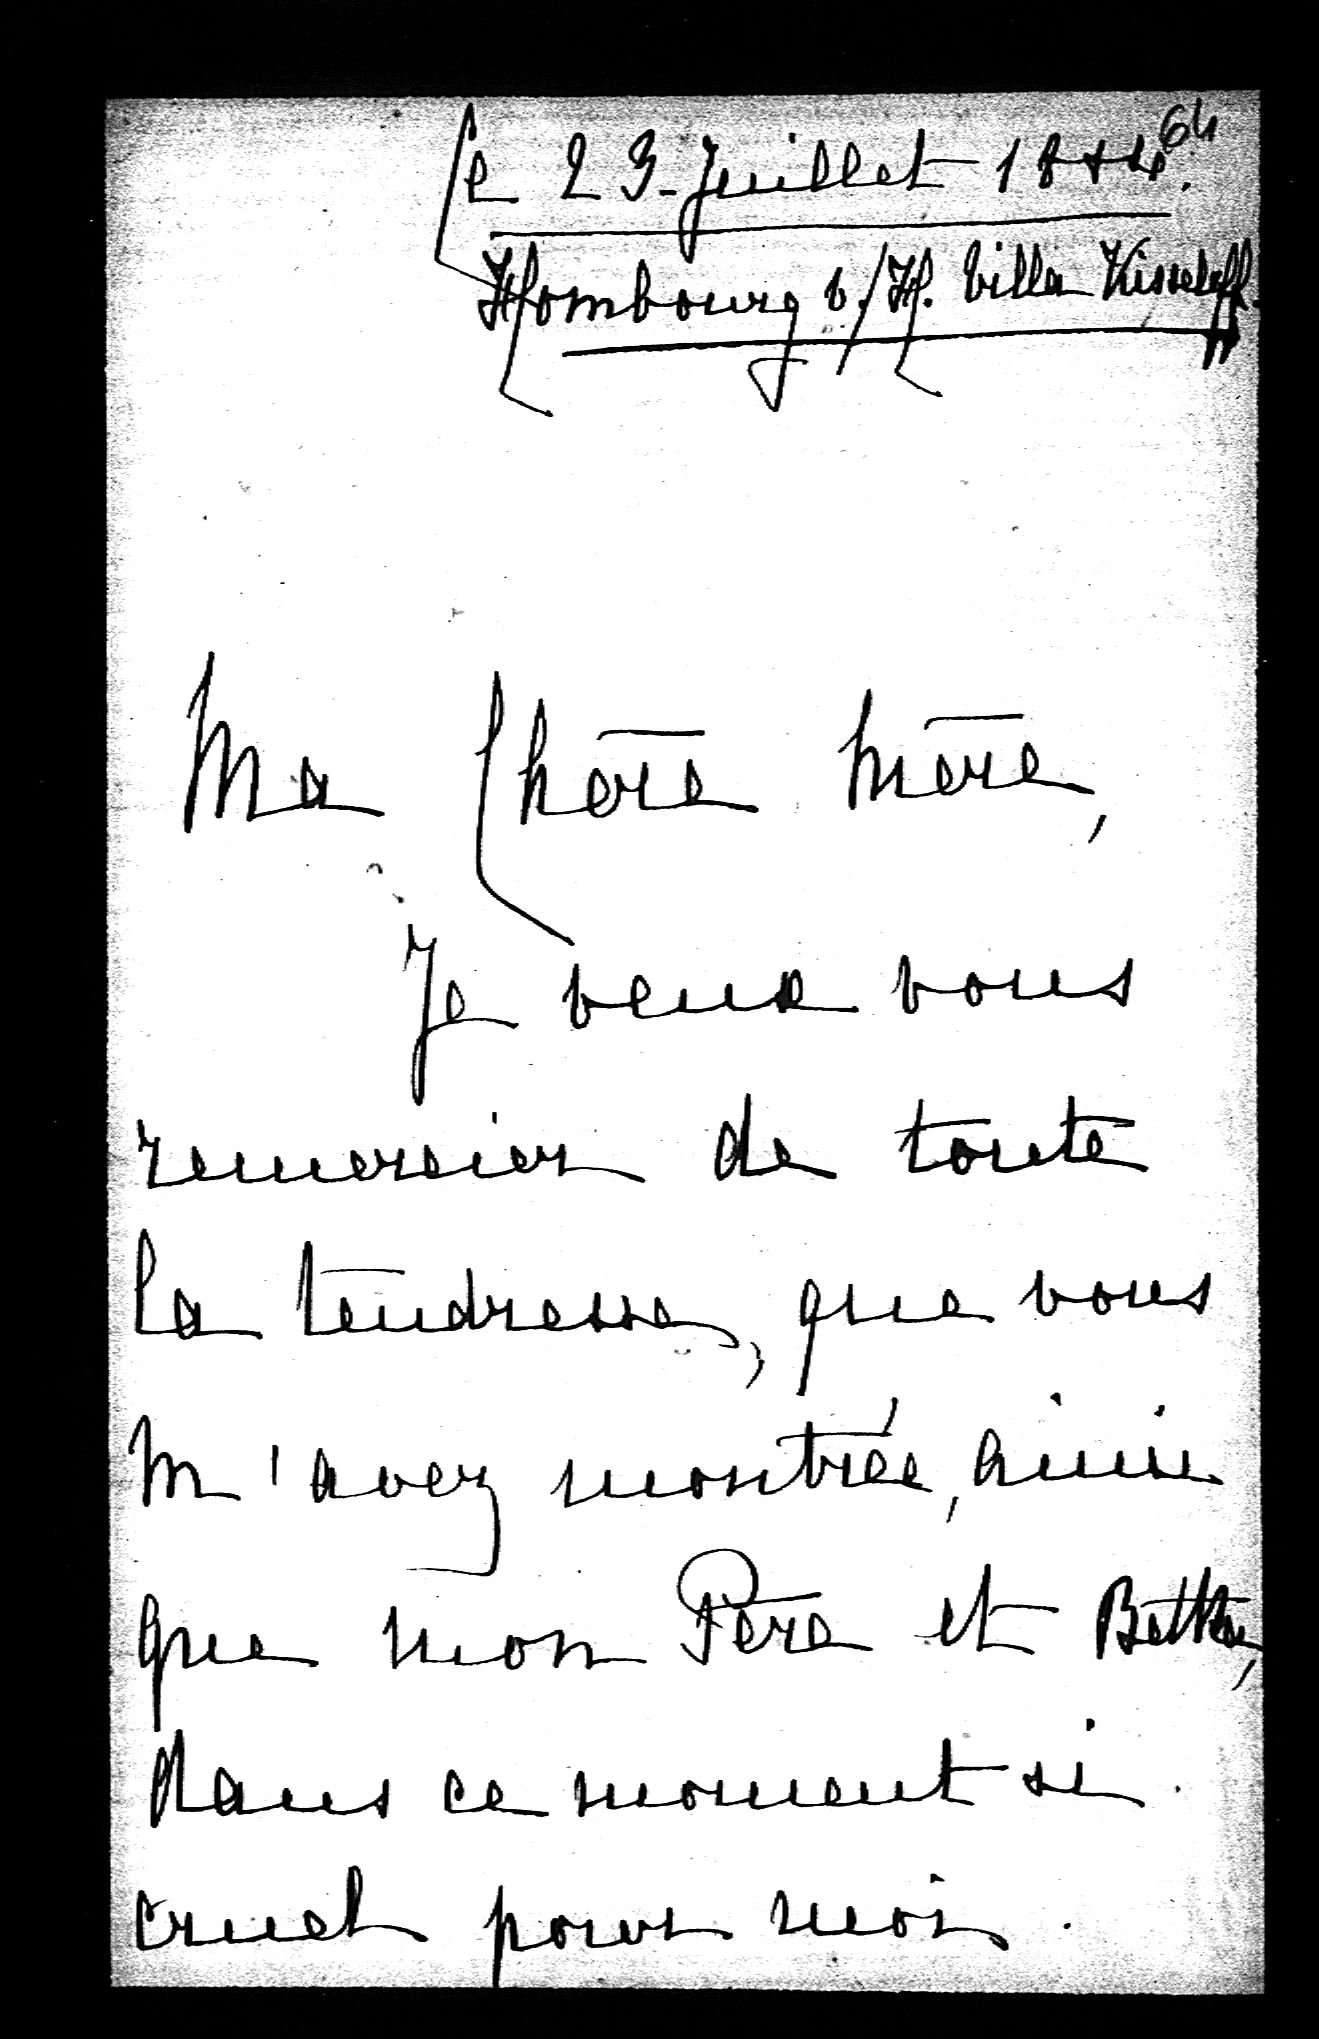 64
Ce 23 Juillet 1884.
Hombourg v./H. Villa Kisseleff.
Ma Chère Mère,
Je veux vous
remercier de toute
la tendresse, que vous
m'avez montrée, ainsi
que mon Père et
dans ce moment si
cruel pour moi.